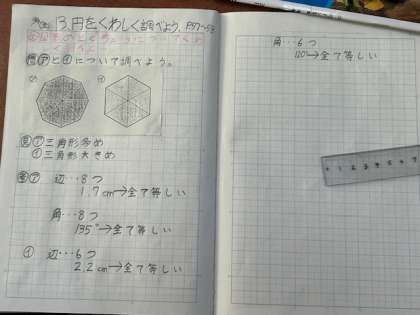 13.円をくわしく調べよう。P57~58
問㋐と㋑について調べよう。
㋐
㋑
見㋐三角形多め
㋑三角形大きめ
㋐ 辺…8つ
1.7cm→全て等しい
角…8つ
135°→全て等しい
㋑ 辺…6つ
2.2cm→全て等しい
角…6つ
120°→全て等しい